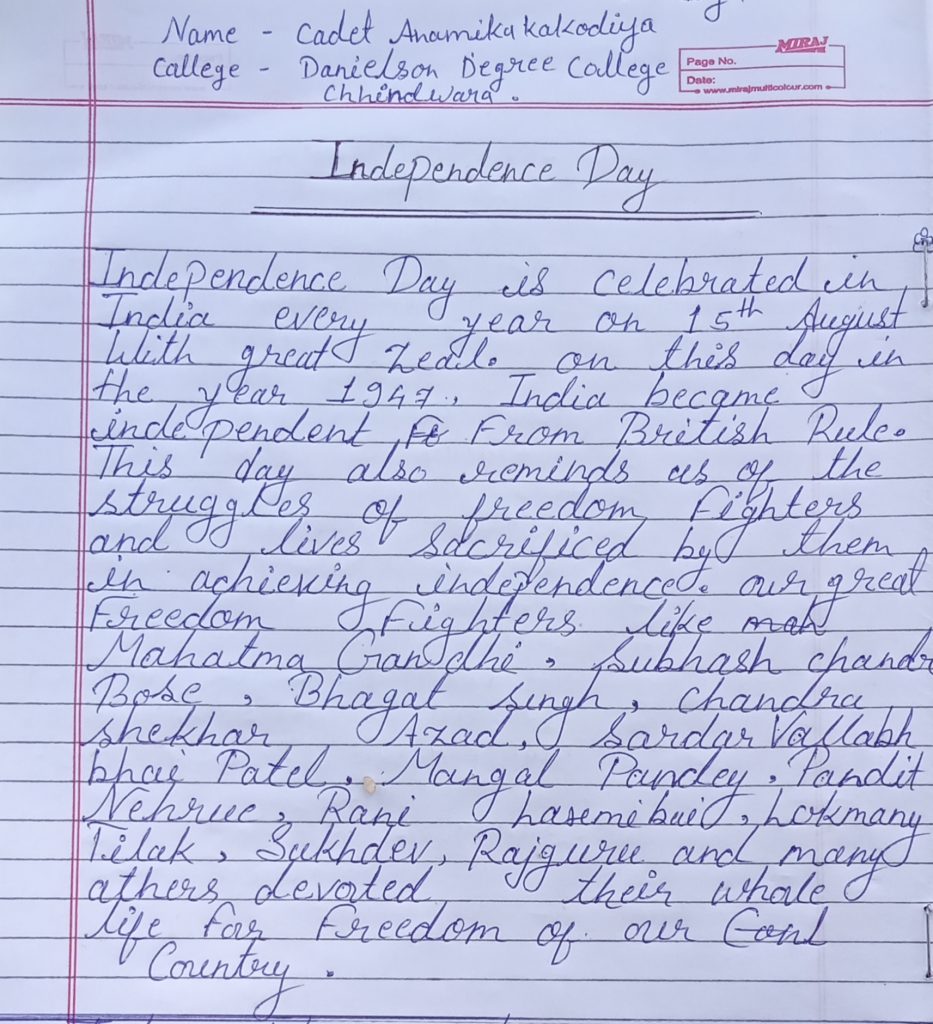 Name - Cadet Anamika kakodiya
College - Danielson Degree College
Chhindwara.
MIRAJ
Page No.
Date:
www.mirajmulticolour.com
Independence Day
Independence Day is celebrated in
India every year on 15th August
With great zeal. on this day in
the year 1947, India became
independent From British Rule.
This day also reminds us of the
struggles of freedom Fighters
and lives sacrificed by them
in achieving independence. our great
Freedom Fighters like mah
Mahatma Gandhi, Subhash chandr
Bose, Bhagat Singh, Chandra
shekhar Azad, Sardar Vallabh
bhai Patel, Mangal Pandey, Pandit
Nehrue, Rani laxmibai, Lokmany
Tilak, Sukhdev, Rajguru and many
athers devoted their whole
life for freedom of our
Country.